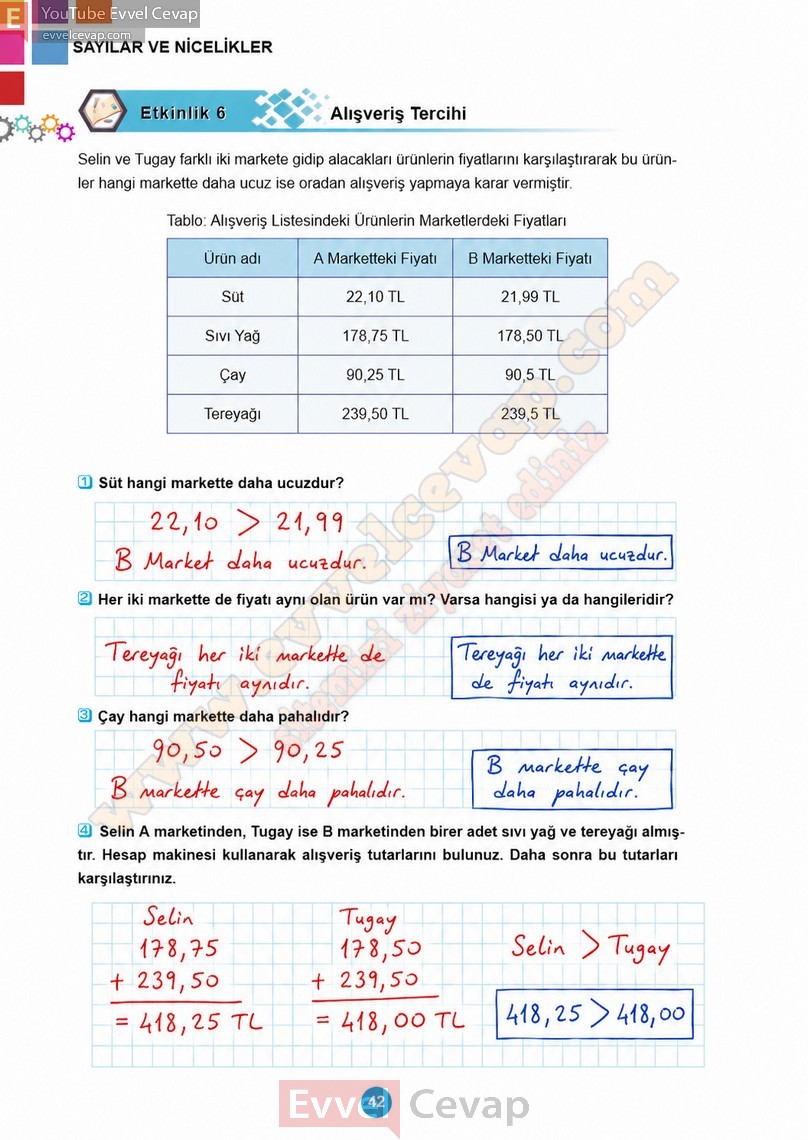 E
YouTube Evvel Cevap
evvelcevap.com
SAYILAR VE NİCELİKLER
Etkinlik 6
Alışveriş Tercihi
Selin ve Tugay farklı iki markete gidip alacakları ürünlerin fiyatlarını karşılaştırarak bu ürün-
ler hangi markette daha ucuz ise oradan alışveriş yapmaya karar vermiştir.
Tablo: Alışveriş Listesindeki Ürünlerin Marketlerdeki Fiyatları
Ürün adı A Marketteki Fiyatı B Marketteki Fiyatı
Süt 22,10 TL 21,99 TL
Sıvı Yağ 178,75 TL 178,50 TL
Çay 90,25 TL 90,5 TL
Tereyağı 239,50 TL 239,5 TL
www.evvelcevap.com
sitemizi ziyaret ediniz
1 Süt hangi markette daha ucuzdur?
22,10 > 21,99
B Market daha ucuzdur.
B Market daha ucuzdur.
2 Her iki markette de fiyatı aynı olan ürün var mı? Varsa hangisi ya da hangileridir?
Tereyağı her iki markette de
fiyatı aynıdır.
Tereyağı her iki markette
de fiyatı aynıdır.
3 Çay hangi markette daha pahalıdır?
90,50 > 90,25
B markette çay daha pahalıdır.
B markette çay
daha pahalıdır.
4 Selin A marketinden, Tugay ise B marketinden birer adet sıvı yağ ve tereyağı almış-
tır. Hesap makinesi kullanarak alışveriş tutarlarını bulunuz. Daha sonra bu tutarları
karşılaştırınız.
Selin
178,75
+ 239,50
= 418,25 TL
Tugay
178,50
+ 239,50
= 418,00 TL
Selin > Tugay
418,25 > 418,00
42
Evvel Cevap